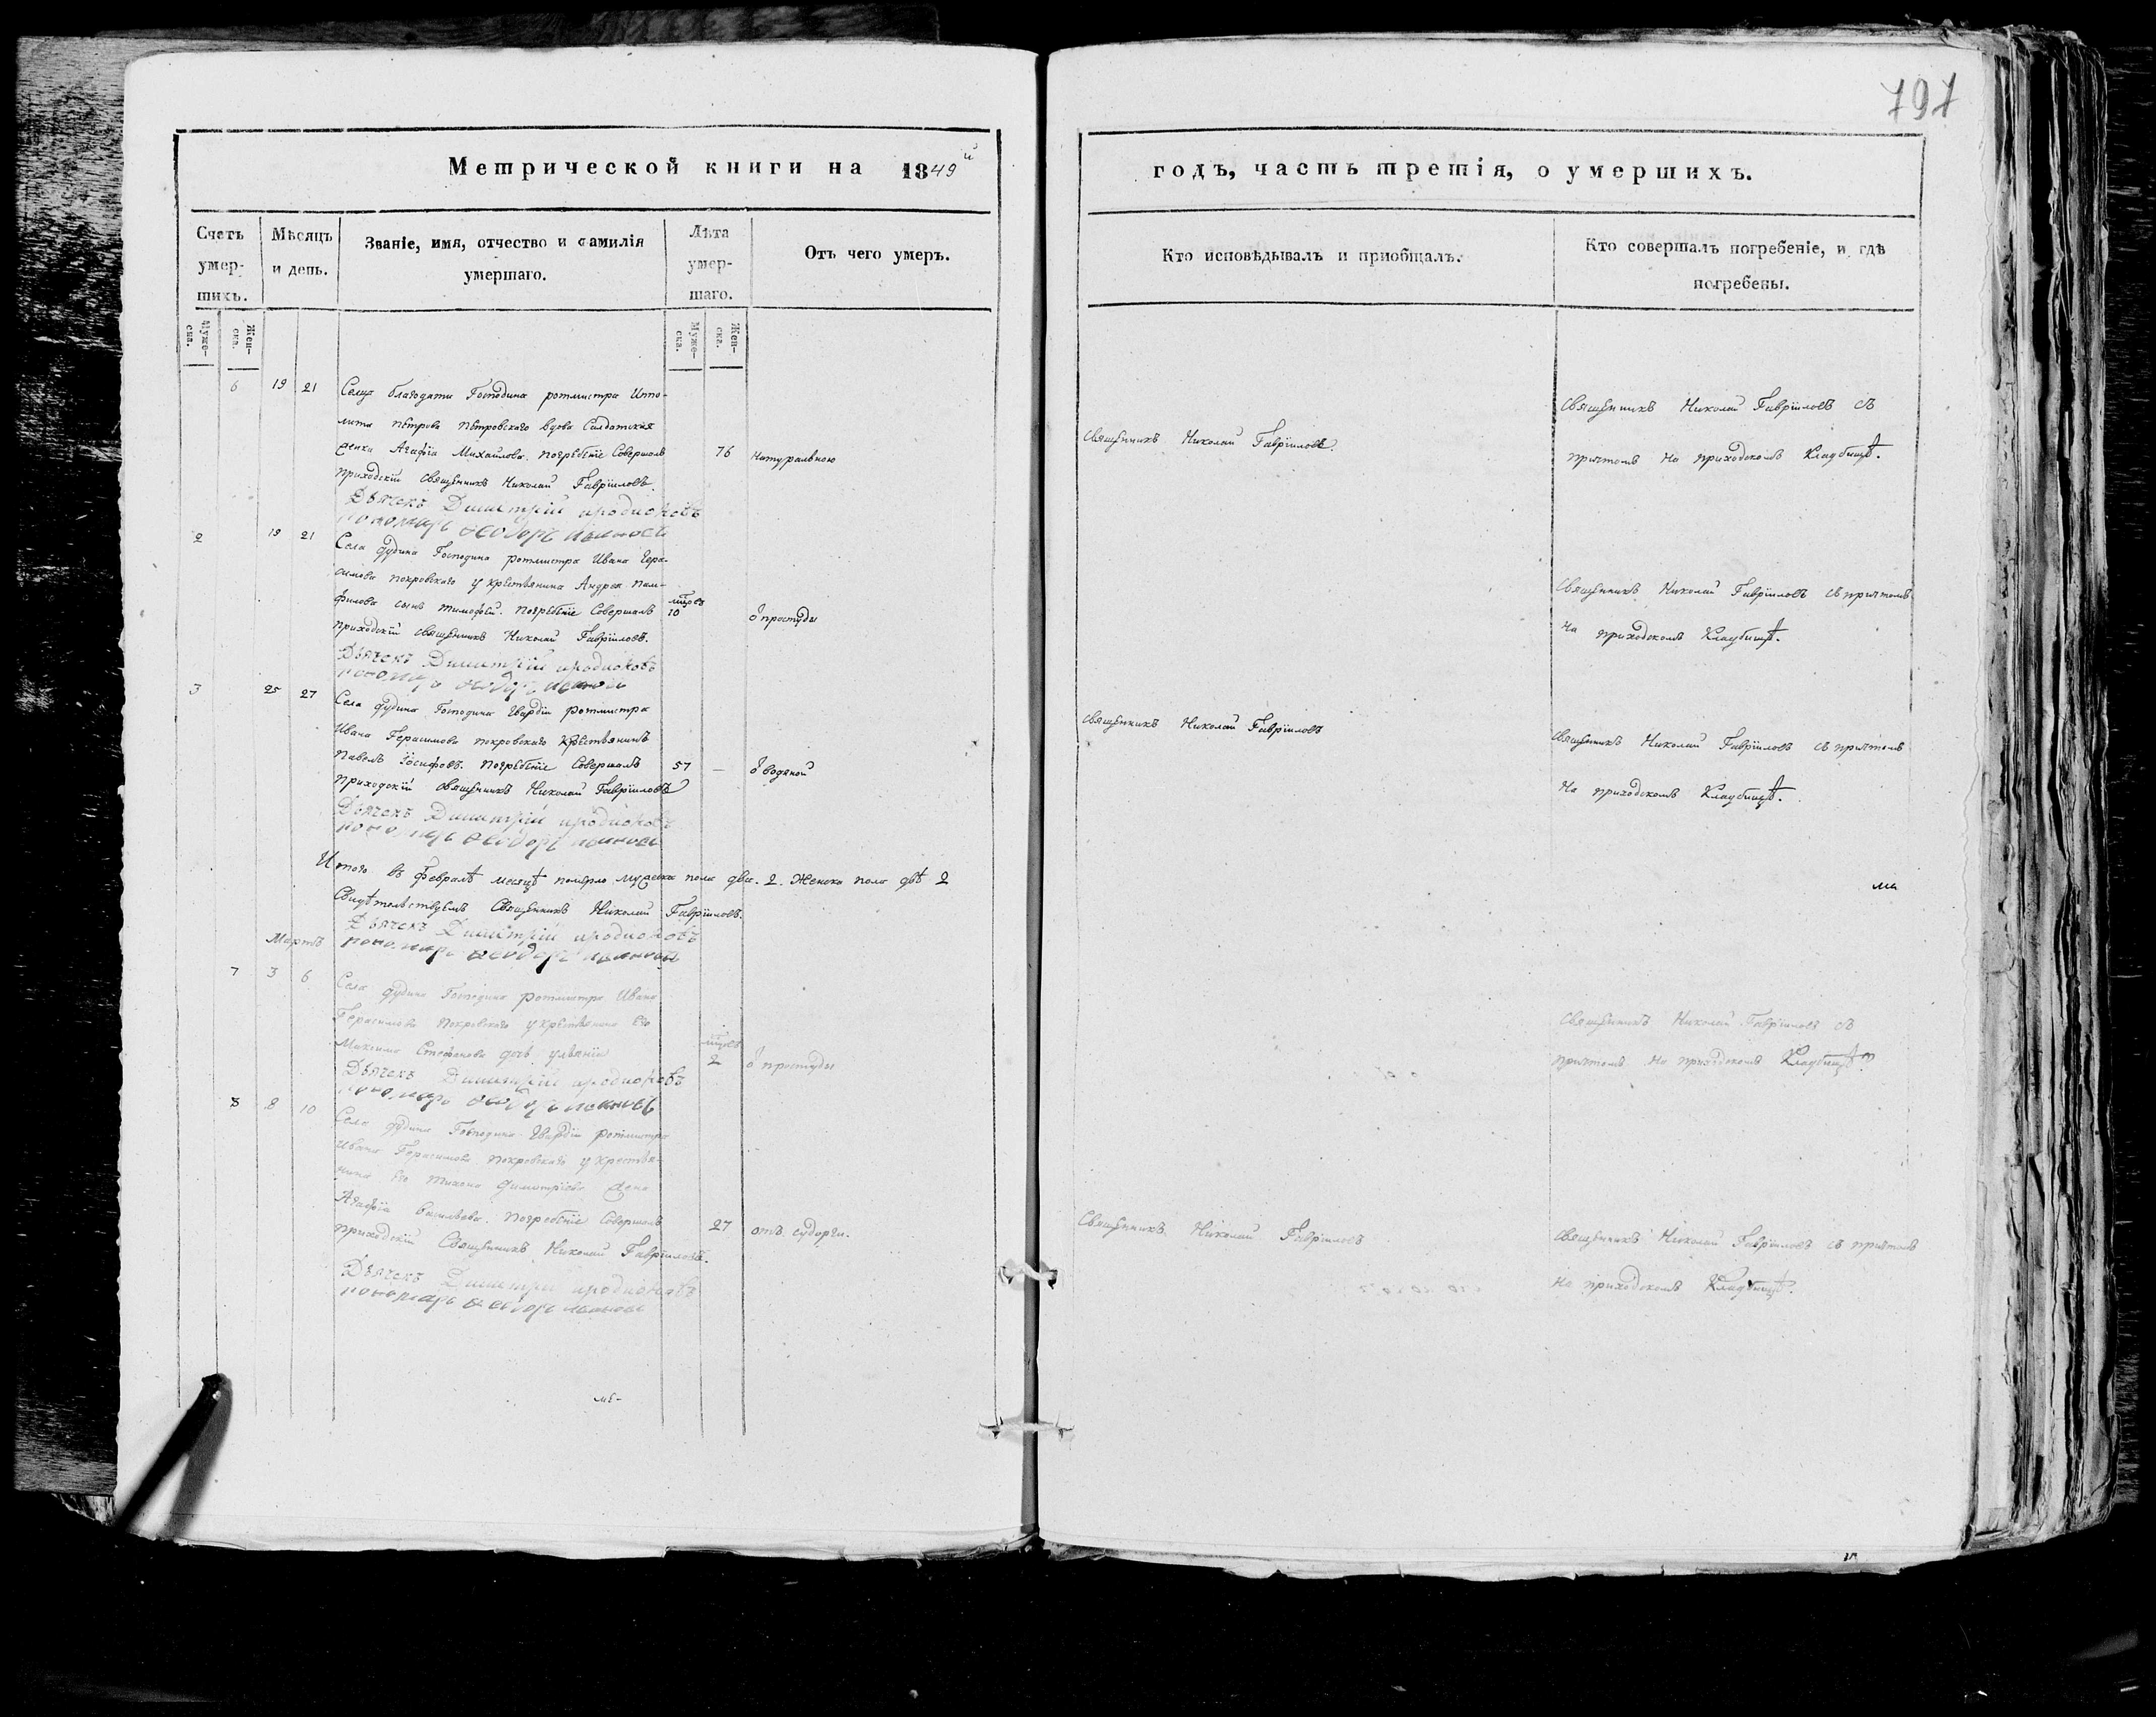 797
Метрической книги на 1849й
годъ, часть третія, о умершихъ.
Счетъ умер-шихъ.
Мѣсяцъ и день.
Званіе, имя, отчество и фамилія умершаго.
Лѣта умер-шаго.
Отъ чего умеръ.
Кто исповѣдывалъ и пріобщалъ.
Кто совершалъ погребеніе, и гдѣ погребены.
Муже-ска.
Жен-ска.
Муже-ска.
Жен-ска.
6 19 21 Сельца благодати Господина ротмистра Иппо-
лита петрова петровскаго вдова Солдатская
женка Агафіа Михайлова. погребеніе Совершалъ 76 натуральною
приходскій Священникъ Николай Гавріиловъ.
Дьячекъ Димитрій иродіоновъ
пономарь Ѳеодоръ ивановъ
Священникъ Николай Гавріиловъ.
Священникъ Николай Гавріиловъ съ
причтомъ на приходскомъ Кладбищѣ.
2 19 21 Села дудина Господина ротмистра Ивана Гера-
симова покровскаго у крестьянина Андрея пам-
филова сынъ тимофей. погребеніе Совершалъ 10 ѿ простуды
приходскій священникъ Николай Гавріиловъ.
Дьячекъ Димитрій иродіоновъ
пономарь Ѳеодоръ ивановъ
Священникъ Николай Гавріиловъ съ причтомъ
на приходскомъ Кладбищѣ.
3 25 27 Села дудина Господина Гвардіи ротмистра
Ивана Герасимова покровскаго Крестьянинъ
павелъ іосифовъ. погребеніе Совершалъ 57 — ѿ водяной
приходскій священникъ Николай Гавріиловъ
Дьячекъ Димитрій иродіоновъ
пономарь Ѳеодоръ ивановъ
Священникъ Николай Гавріиловъ
Священникъ Николай Гавріиловъ съ причтомъ
на приходскомъ Кладбищѣ.
Итого въ февралѣ месяцѣ померло мужеска пола два. 2. Женска пола двѣ 2
Свидѣтельствуемъ Священникъ Николай Гавріиловъ.
Дьячекъ Димитрій иродіоновъ
Мартъ пономарь Ѳеодоръ ивановъ
7 3 6 Села дудина Господина ротмистра Ивана
Герасимова покровскаго у крестьянина его
Максима Стефанова дочь уліянія 2 ѿ простуды
Дьячекъ Димитрій иродіоновъ
пономарь Ѳеодоръ ивановъ
Священникъ Николай Гавріиловъ съ
причтомъ на приходскомъ Кладбищѣ
8 8 10 Села дудина Господина Гвардіи ротмистра
Ивана Герасимова покровскаго у крестья-
нина его тихона димитріева жена
Агафіа васильева. погребеніе Совершалъ 27 отъ судорги.
приходскій Священникъ Николай Гавріиловъ.
Дьячекъ Димитрій иродіоновъ
пономарь Ѳеодоръ ивановъ
Священникъ Николай Гавріиловъ
Священникъ Николай Гавріиловъ съ причтомъ
на приходскомъ Кладбищѣ.